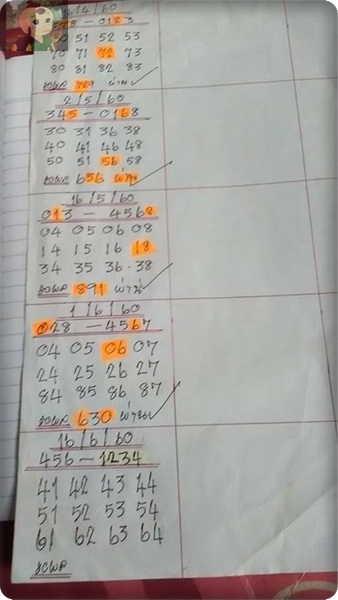 16/4/60
0123
50 51 52 53
70 71 72 73
80 81 82 83
789 ผ่าน
2/5/60
345 - 0168
30 31 36 38
40 41 46 48
50 51 56 58
656 ผ่าน
16/5/60
013 - 4568
04 05 06 08
14 15 16 18
34 35 36 38
891 ผ่าน
1/6/60
028 - 4567
04 05 06 07
24 25 26 27
84 85 86 87
630 ผ่าน
16/6/60
456 - 1234
41 42 43 44
51 52 53 54
61 62 63 64